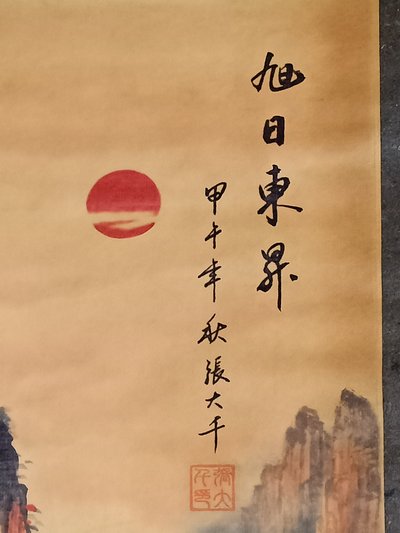 旭日東昇
甲午年秋張大千